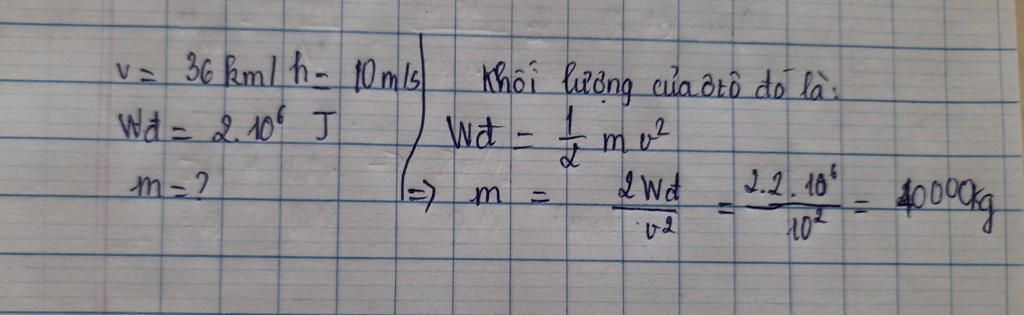 v = 36 km/h = 10 m/s
Wđ = 2.10⁶ J
m = ?
Khối lượng của ôtô đó là:
Wđ = 1/2 m v²
=> m = 2Wđ/v² = 2.2.10⁶/10² = 40000kg